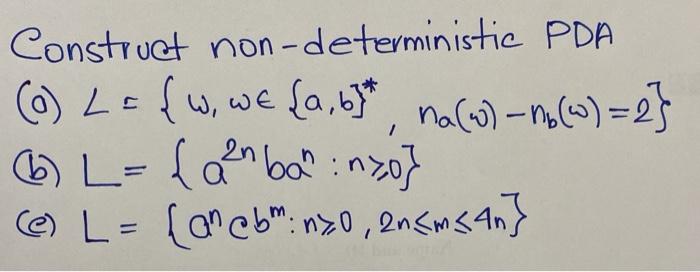 Construct non-deterministic PDA
(a) L = { w, w∈ {a,b}*, na(w) – nb(w) = 2}
(b) L = { a²ⁿ b aⁿ : n≥0}
(c) L = {aⁿ c bᵐ : n≥0, 2n≤m≤4n}